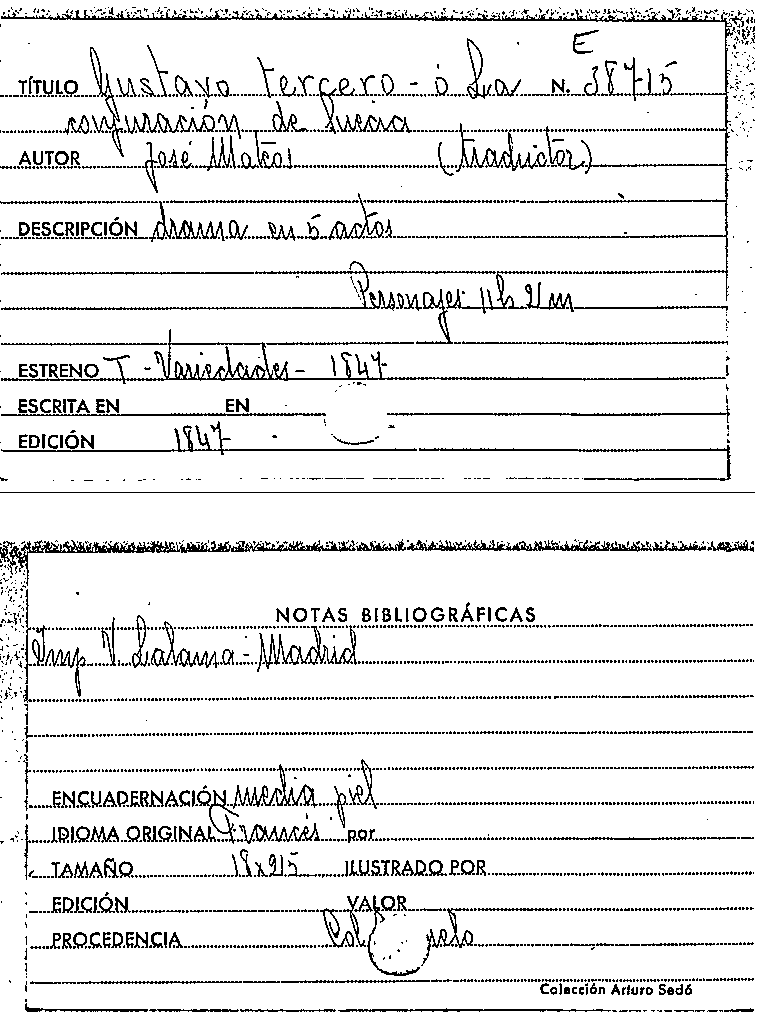 E
TÍTULO Gustavo tercero - ó La N. 38715
conjuración de Suecia
AUTOR José Mateos (traductor)
DESCRIPCIÓN drama en 5 actos
Personajes 11 h 2 m
ESTRENO T - Variedades - 1847
ESCRITA EN EN
EDICIÓN 1847
NOTAS BIBLIOGRÁFICAS
Imp V. Lalama - Madrid
ENCUADERNACIÓN media piel
IDIOMA ORIGINAL Francés por
TAMAÑO ILUSTRADO POR
EDICIÓN VALOR
PROCEDENCIA Col
Colección Arturo Sedó